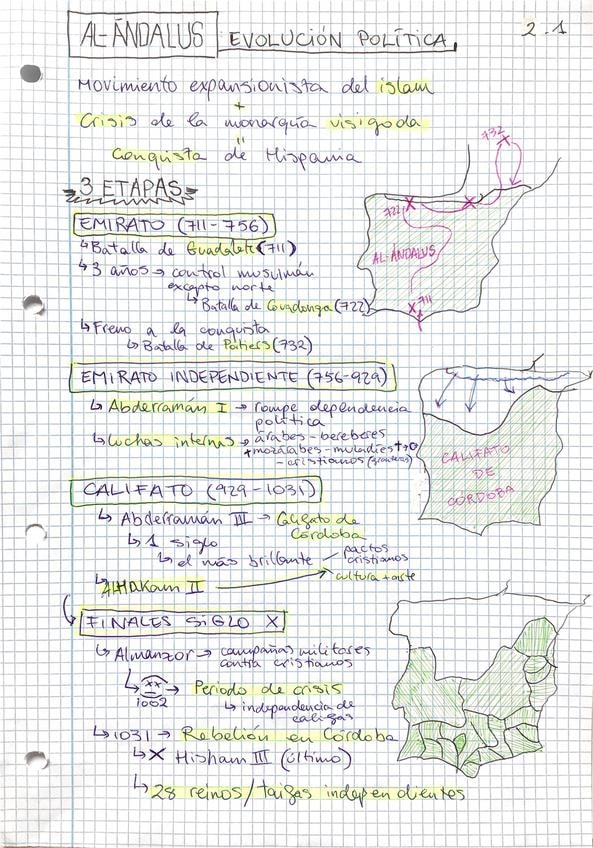 AL-ÁNDALUS EVOLUCIÓN POLÍTICA. 2.1
Movimiento expansionista del islam
+
Crisis de la monarquía visigoda
"
Conquista de Hispania
3 ETAPAS
EMIRATO (711-756)
↳ Batalla de Guadalete (711)
↳ 3 años → control musulmán
excepto norte
↳ Batalla de Covadonga (722)
↳ Freno a la conquista
↳ Batalla de Poitiers (732)
732
722
AL-ÁNDALUS
711
EMIRATO INDEPENDIENTE (756-929)
↳ Abderramán I → rompe dependencia
política
↳ luchas internas → árabes - bereberes
+ mozárabes - muladíes
- cristianos
CALIFATO
DE
CÓRDOBA
CALIFATO (929-1031)
↳ Abderramán III → Califato de
Córdoba
↳ 1 siglo
↳ el más brillante
pactos
cristianos
cultura + arte
↳ AlHakam II
FINALES SIGLO X
↳ Almanzor → campañas militares
contra cristianos
↳ → Periodo de crisis
1002
↳ independencia de
califas
↳ 1031 → Rebelión en Córdoba
↳ X Hisham III (último)
↳ 28 reinos/taifas independientes